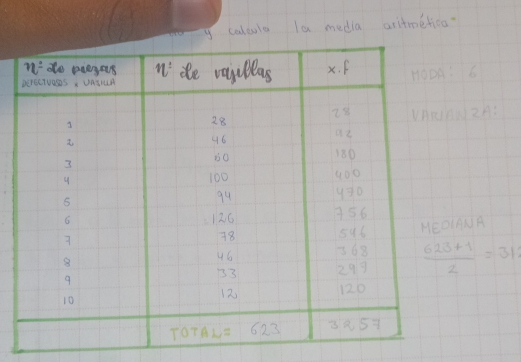 y calcula la media aritmética"
nº de piezas nº de vajillas x.f
DEFECTUOSAS x VAJILLA
MODA: 6
VARIANZA:
1 28 28
2 46 92
3 60 180
4 100 400
5 94 470
6 126 756
7 78 546
8 46 368
9 33 299
10 12 120
MEDIANA
623+1
2
= 312
TOTAL= 623 3257